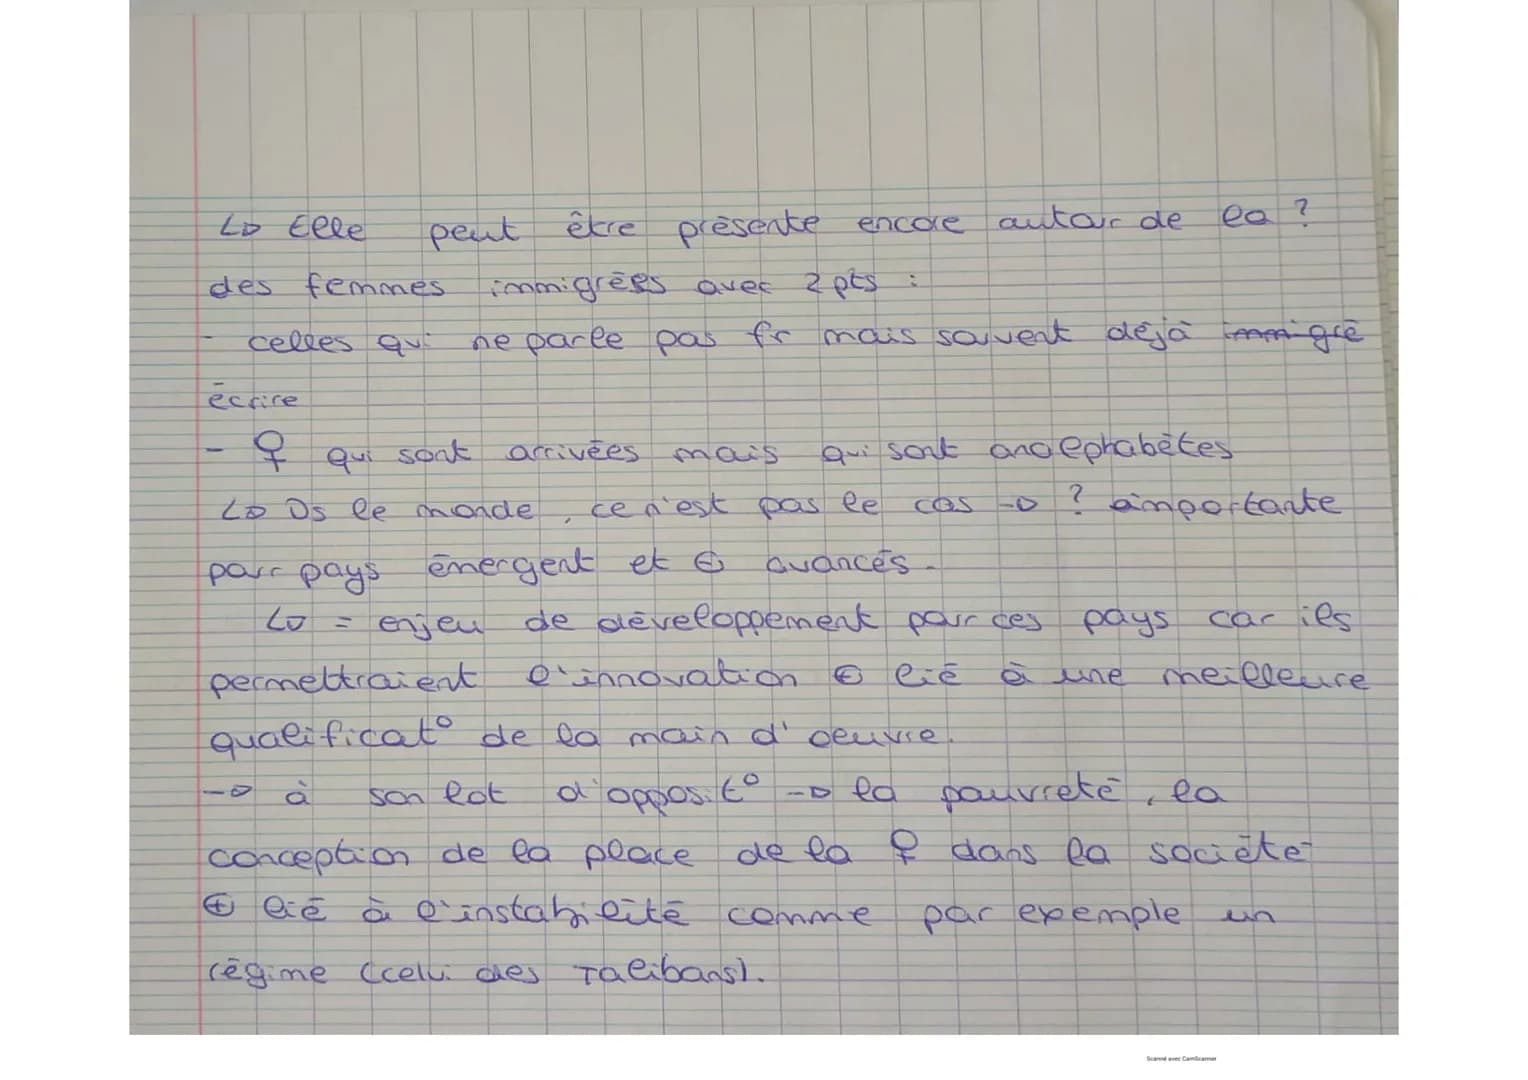 ↳ Elle peut être présente encore autour de la ?
des femmes immigrées avec 2 pts :
- celles qui ne parle pas fr mais savent déjà ~~immigré~~
écrire
- ♀ qui sont arrivées mais qui sont analephabètes
↳ Ds le monde, ce n'est pas le cas → ? importante
pour pays émergent et ⊕ avancés.
↳ = enjeu de développement pour ces pays car ils
permettraient l'innovation ⊕ lié à une meilleure
qualificat° de la main d'oeuvre.
→ à son lot d'opposit° → la pauvreté, la
conception de la place de la ♀ dans la société
⊕ lié à l'instabilité comme par exemple un
régime (celui des Talibans).
Scanné avec CamScanner